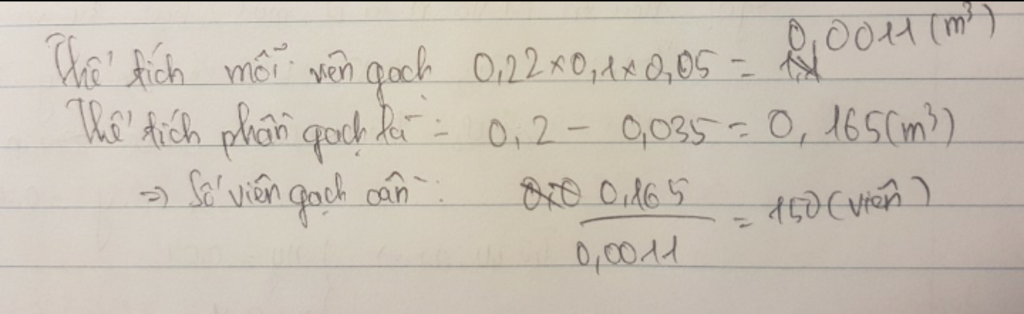 Thể tích mỗi viên gạch 0,22×0,1×0,05 = 0,0011 (m³)
Thể tích phần gạch là = 0,2 - 0,035 = 0,165(m³)
⇒ Số viên gạch cần: 0,165 / 0,0011 = 150 (viên)